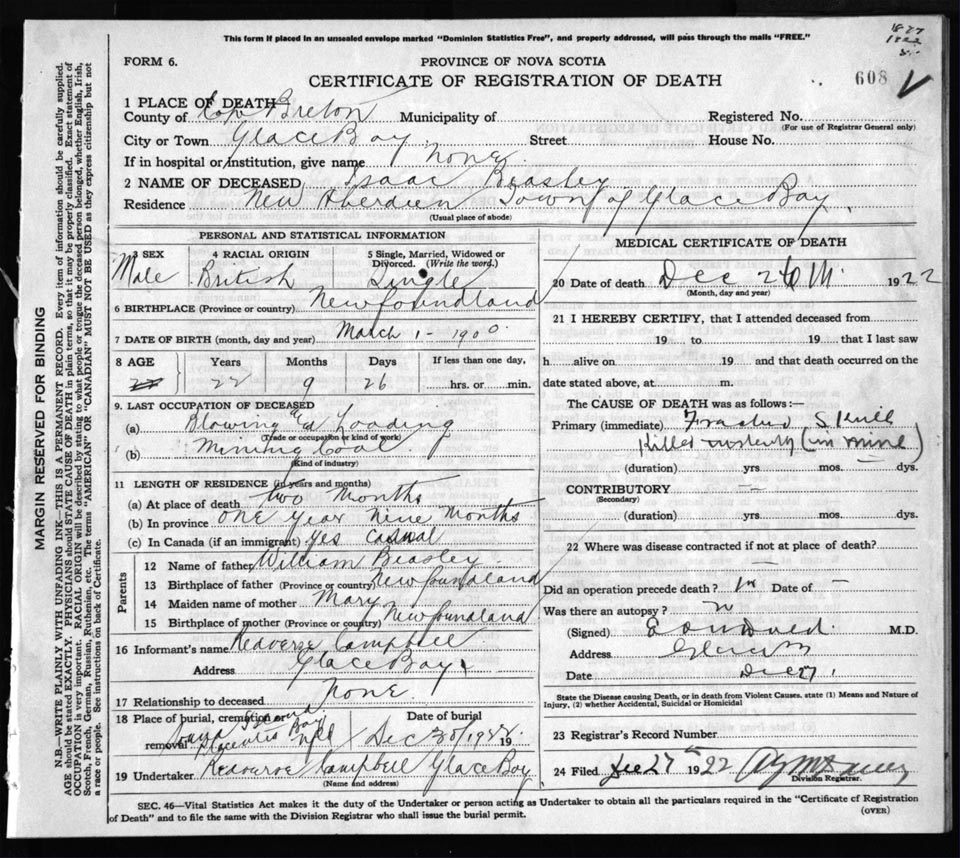 This form if placed in an unsealed envelope marked "Dominion Statistics Free", and properly addressed, will pass through the mails "FREE."
FORM 6.
PROVINCE OF NOVA SCOTIA
CERTIFICATE OF REGISTRATION OF DEATH
608
1 PLACE OF DEATH
County of Cape Breton Municipality of Registered No.
(For use of Registrar General only)
City or Town Glace Bay Street House No.
If in hospital or institution, give name None
2 NAME OF DECEASED Isaac Beasley
Residence New Aberdeen Town of Glace Bay
(Usual place of abode)
PERSONAL AND STATISTICAL INFORMATION
3 SEX 4 RACIAL ORIGIN 5 Single, Married, Widowed or Divorced. (Write the word.)
Male British Single
6 BIRTHPLACE (Province or country) Newfoundland
7 DATE OF BIRTH (month, day and year) March 1 - 1900
8 AGE Years Months Days If less than one day,
22 9 26 hrs. or min.
9. LAST OCCUPATION OF DECEASED
(a) Blowing Ed Loading
(Trade or occupation or kind of work)
(b) Mining Coal
(Kind of industry)
11 LENGTH OF RESIDENCE (in years and months)
(a) At place of death two Months
(b) In province one year nine months
(c) In Canada (if an immigrant) yes casual
Parents
12 Name of father William Beasley
13 Birthplace of father (Province or country) Newfoundland
14 Maiden name of mother Mary
15 Birthplace of mother (Province or country) Newfoundland
16 Informant's name Redverse Campbell
Address Glace Bay
17 Relationship to deceased None
18 Place of burial, cremation or removal Placentia Bay Nfld
Date of burial Dec 30/1922 19
19 Undertaker Redverse Campbell Glace Bay
(Name and address)
MEDICAL CERTIFICATE OF DEATH
20 Date of death Dec 26th 1922
(Month, day and year)
21 I HEREBY CERTIFY, that I attended deceased from
19 to 19 that I last saw
h alive on 19 and that death occurred on the
date stated above, at m.
The CAUSE OF DEATH was as follows:—
Primary (immediate) Fractured Skull
Killed instantly (in mine)
(duration) yrs mos. dys.
CONTRIBUTORY
(Secondary)
(duration) yrs. mos. dys.
22 Where was disease contracted if not at place of death?
Did an operation precede death? Date of —
Was there an autopsy? n
(Signed) M.D.
Address
Date Dec 27
State the Disease causing Death, or in death from Violent Causes, state (1) Means and Nature of Injury, (2) whether Accidental, Suicidal or Homicidal
23 Registrar's Record Number
24 Filed Dec 27 1922
Division Registrar.
SEC. 46—Vital Statistics Act makes it the duty of the Undertaker or person acting as Undertaker to obtain all the particulars required in the "Certificate of Registration
of Death" and to file the same with the Division Registrar who shall issue the burial permit.
(OVER)
MARGIN RESERVED FOR BINDING
N.B.—WRITE PLAINLY WITH UNFADING INK—THIS IS A PERMANENT RECORD. Every item of information should be carefully supplied.
AGE should be stated EXACTLY. PHYSICIANS should STATE CAUSE OF DEATH in plain terms, so that it may be properly classified. Exact statement of
OCCUPATION is very important. RACIAL ORIGIN will be described by stating to what people or tongue the deceased person belonged, whether English, Irish,
Scotch, French, German, Russian, Ruthenian, etc. The terms "AMERICAN" or "CANADIAN" MUST NOT BE USED as they express citizenship but not
a race or people. See instructions on back of Certificate.